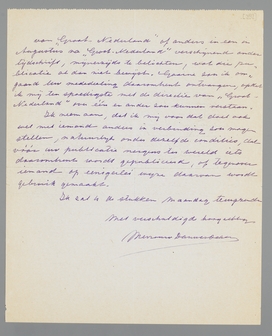 van "Groot-Nederland" of anders in een in
Augustus na "Groot-Nederland" verschijnend ander
tijdschrift, mijnerzijds te beletten, wat die pu-
blicatie
gaarne zou ik nu,
daaromtrent ontvangen, opdat
ik mij ten spoedigste met de directie van "Groot-
Nederland" over één en ander kan verstaan.
Ik neem aan, dat ik mij voor dat doel ook
wel met iemand anders in verbinding zou mogen
stellen, natuurlijk onder dezelfde conditie, dat
vóór uw publicatie nergens ter wereld iets
daaromtrent wordt gepubliceerd, of tegenover
iemand op eenigerlei wijze daarvan wordt
gebruik gemaakt.
Ik zal U de stukken Maandag terugzenden
Met verschuldigde hoogachting